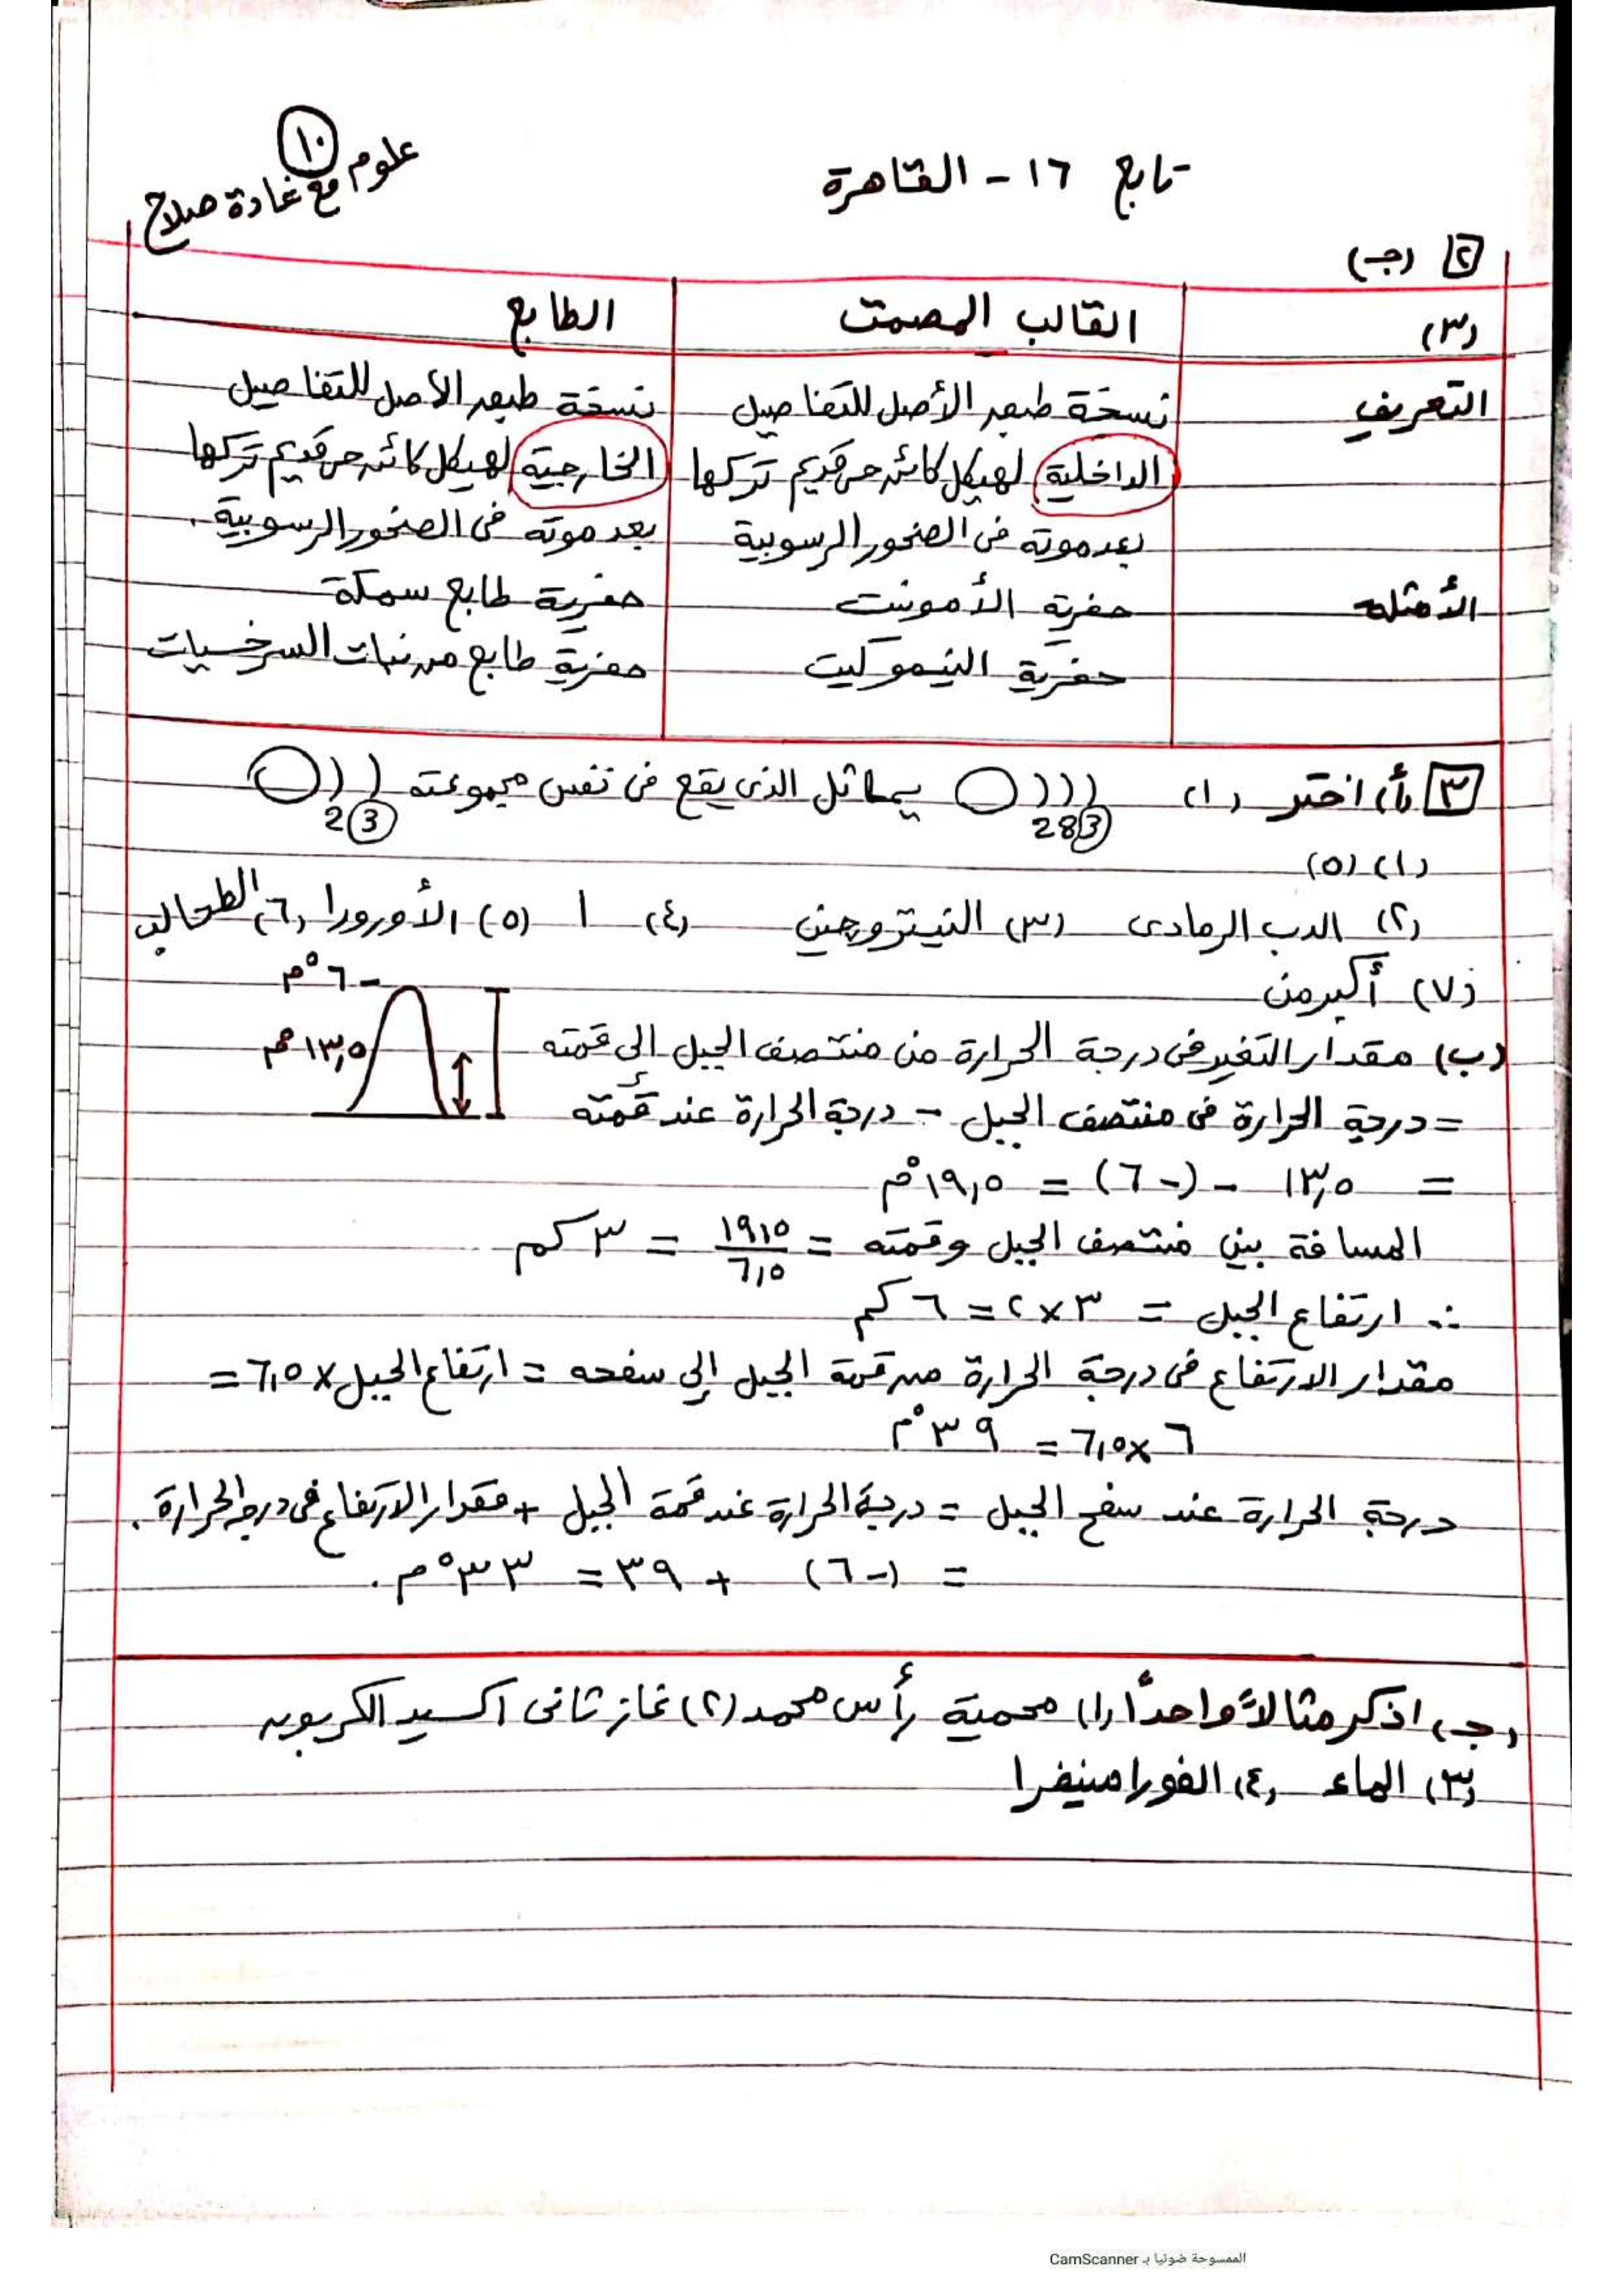 علوم ١٠
مع غادة صلاح
تابع ١٦ - القاهرة
٢ (جـ)
(٣) القالب المصمت الطابع
التعريف نسخة طبق الأصل للتفاصيل نسخة طبق الأصل للتفاصيل
الداخلية لهيكل كائن حى قديم تركها الخارجية لهيكل كائن حى قديم تركها
بعد موته فى الصخور الرسوبية بعد موته فى الصخور الرسوبية.
الأمثلة حفرية الأمونيت حفرية طابع سمكة
حفرية النيموليت حفرية طابع من نبات السرخسيات
٣ (أ) اختر (١) يماثل الذى يقع فى نفس مجموعته
2 8 3 2 3
(١) (٥)
(٢) الدب الرمادى (٣) النيتروجين (٤) ا (٥) الأورورا (٦) الطحالب
(٧) أكبر من
-٦°م
١٣,٥°م
(ب) مقدار التغير فى درجة الحرارة من منتصف الجبل إلى قمته
= درجة الحرارة فى منتصف الجبل - درجة الحرارة عند قمته
= ١٣,٥ - (-٦) = ١٩,٥°م
المسافة بين منتصف الجبل وقمته = ١٩,٥ / ٦,٥ = ٣ كم
∴ ارتفاع الجبل = ٣ × ٢ = ٦ كم
مقدار الارتفاع فى درجة الحرارة من قمة الجبل إلى سفحه = ارتفاع الجبل × ٦,٥ =
٦ × ٦,٥ = ٣٩°م
درجة الحرارة عند سفح الجبل = درجة الحرارة عند قمة الجبل + مقدار الارتفاع فى درجة الحرارة.
= (-٦) + ٣٩ = ٣٣°م.
(جـ) اذكر مثالاً واحداً (١) محمية رأس محمد (٢) غاز ثانى اكسيد الكربون
(٣) الماء (٤) الفورامنيفرا
الممسوحة ضوئيا بـ CamScanner